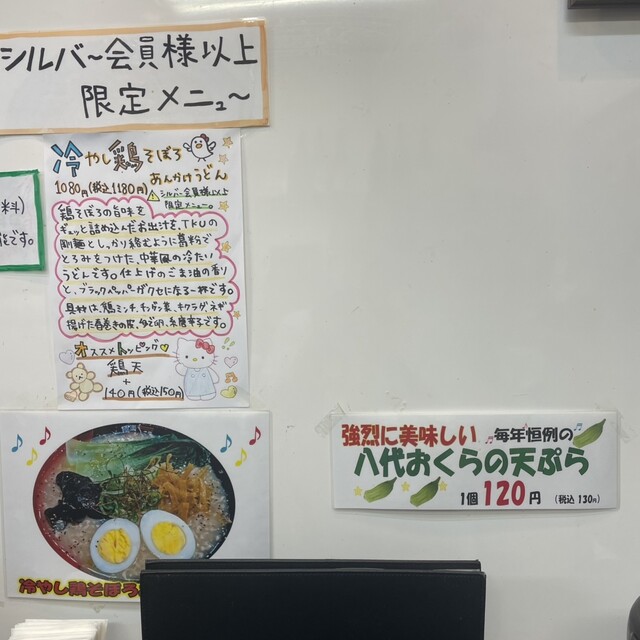 シルバー会員様以上
限定メニュー
冷やし鶏そぼろ
あんかけうどん
1080円(税込1180円)
シルバー会員様以上
限定メニュー。
鶏そぼろの旨味を
ギュッと詰め込んだお出汁を、TKUの
剛麺としっかり絡むように葛粉で
とろみをつけた、中華風の冷たい
うどんです。仕上げのごま油の香り
と、ブラックペッパーがクセになる一杯です。
具材は、鶏ミンチ、チンゲン菜、キクラゲ、ネギ
揚げた春巻きの皮、ゆで卵、糸唐辛子です。
オススメトッピング
鶏天
+
140円(税込150円)
料)
です。
冷やし鶏そぼろ
強烈に美味しい 毎年恒例の
八代おくらの天ぷら
1個 120円 (税込 130円)